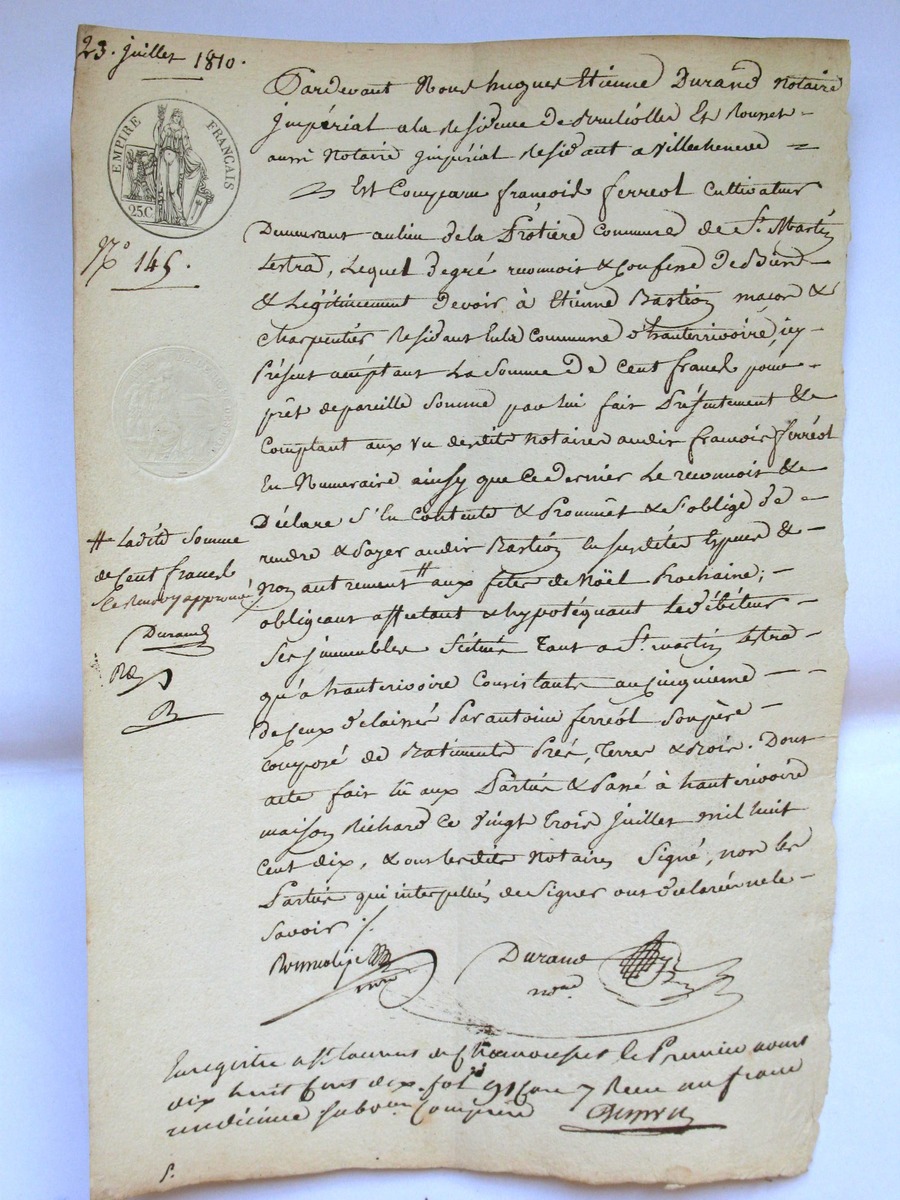 23. juillet 1810.
EMPIRE FRANÇAIS
25C
N.o 145.
Pardevant Nous hugues Etienne Durand notaire
impérial a la Residence de Brulliolles Et
aussi Notaire impérial Residant a Villecheneve =
Est Comparu françois ferréol Cultivateur
Demeurant au lieu de la Protière Commune de St. Martin
Lestrad, Lequel de gré reconnois & Confesse De
& Légitimement Devoir à Etienne Bastion macon &
Charpentier Residant En la Commune d'hauterivoire, icy
Présent acceptant La Somme De Cent francs pour
prêt de pareille Somme par lui fait Présentement &
Comptant aux vu desdits notaires audit francois ferréol
En Numeraire ainsy que Ce dernier Le reconnois &
Déclare S'En Contente & Promêt & s'oblige de
rendre & Payer audit Bastion En susdites Espèces &
Non autrement # aux fêtes de Noël Prochaine; -
obligeant affectant & hypotéquant Le débiteur
Ses immeubles Scitués Tant a St. martin Lestrad
qu'a hauterivoire Consistants au Cinquieme
De Ceux délaissés Par antoine ferréol Son père
Composé de Batiments Prés, Terres & Bois. Dont
acte fait lu aux Parties & Passé à hauterivoire
maison Richard ce vingt Trois juillet mil huit
Cent dix, & ont lesdits Notaires Signé, non les
Parties qui interpellés de Signer ont déclarés ne le
Savoir ./.
# Ladite Somme
de Cent francs
Le Renvoy approuvé
Durand
R
Durand
nore
Enregistré a St Laurent de Chamousset le Premier aout
dix huit Cent dix. fol 91 Case 7 Recu un franc
un décime subvon Comprise